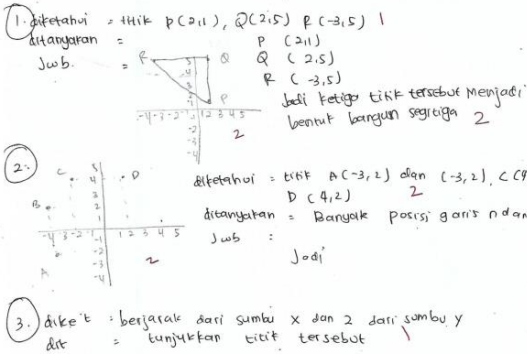 1. diketahui = titik P(2,1), Q(2,5) R(-3,5) 1
ditanyakan = P (2,1)
Jwb. = Q (2,5)
R (-3,5)
Jadi ketiga titik tersebut Menjadi
bentuk bangun segitiga 2
R Q
P
-4 -3 -2 -1 1 2 3 4 5
2
2. C D
B
A
-4 -3 -2 -1 1 2 3 4 5
2
diketahui = titik A(-3,2) dan (-3,2), C(4
D (4,2) 2
ditanyakan = Banyak posisi garis n dan
Jwb :
Jadi
3. dike't = berjarak dari sumbu x dan 2 dari sumbu y
dit = tunjukkan titik tersebut 1